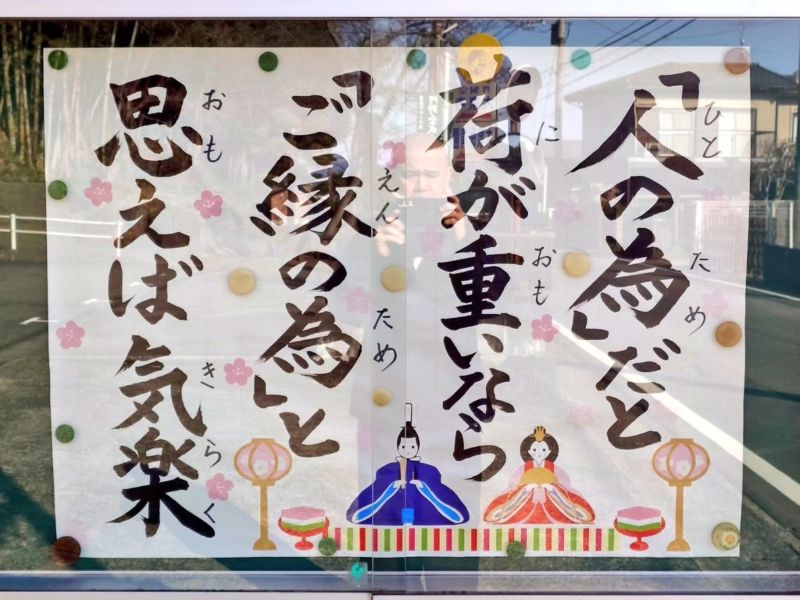 「人の為」だと
ひと
ため
荷が重いなら
に
おも
「ご縁の為」と
えん
ため
思えば気楽
おも
きらく